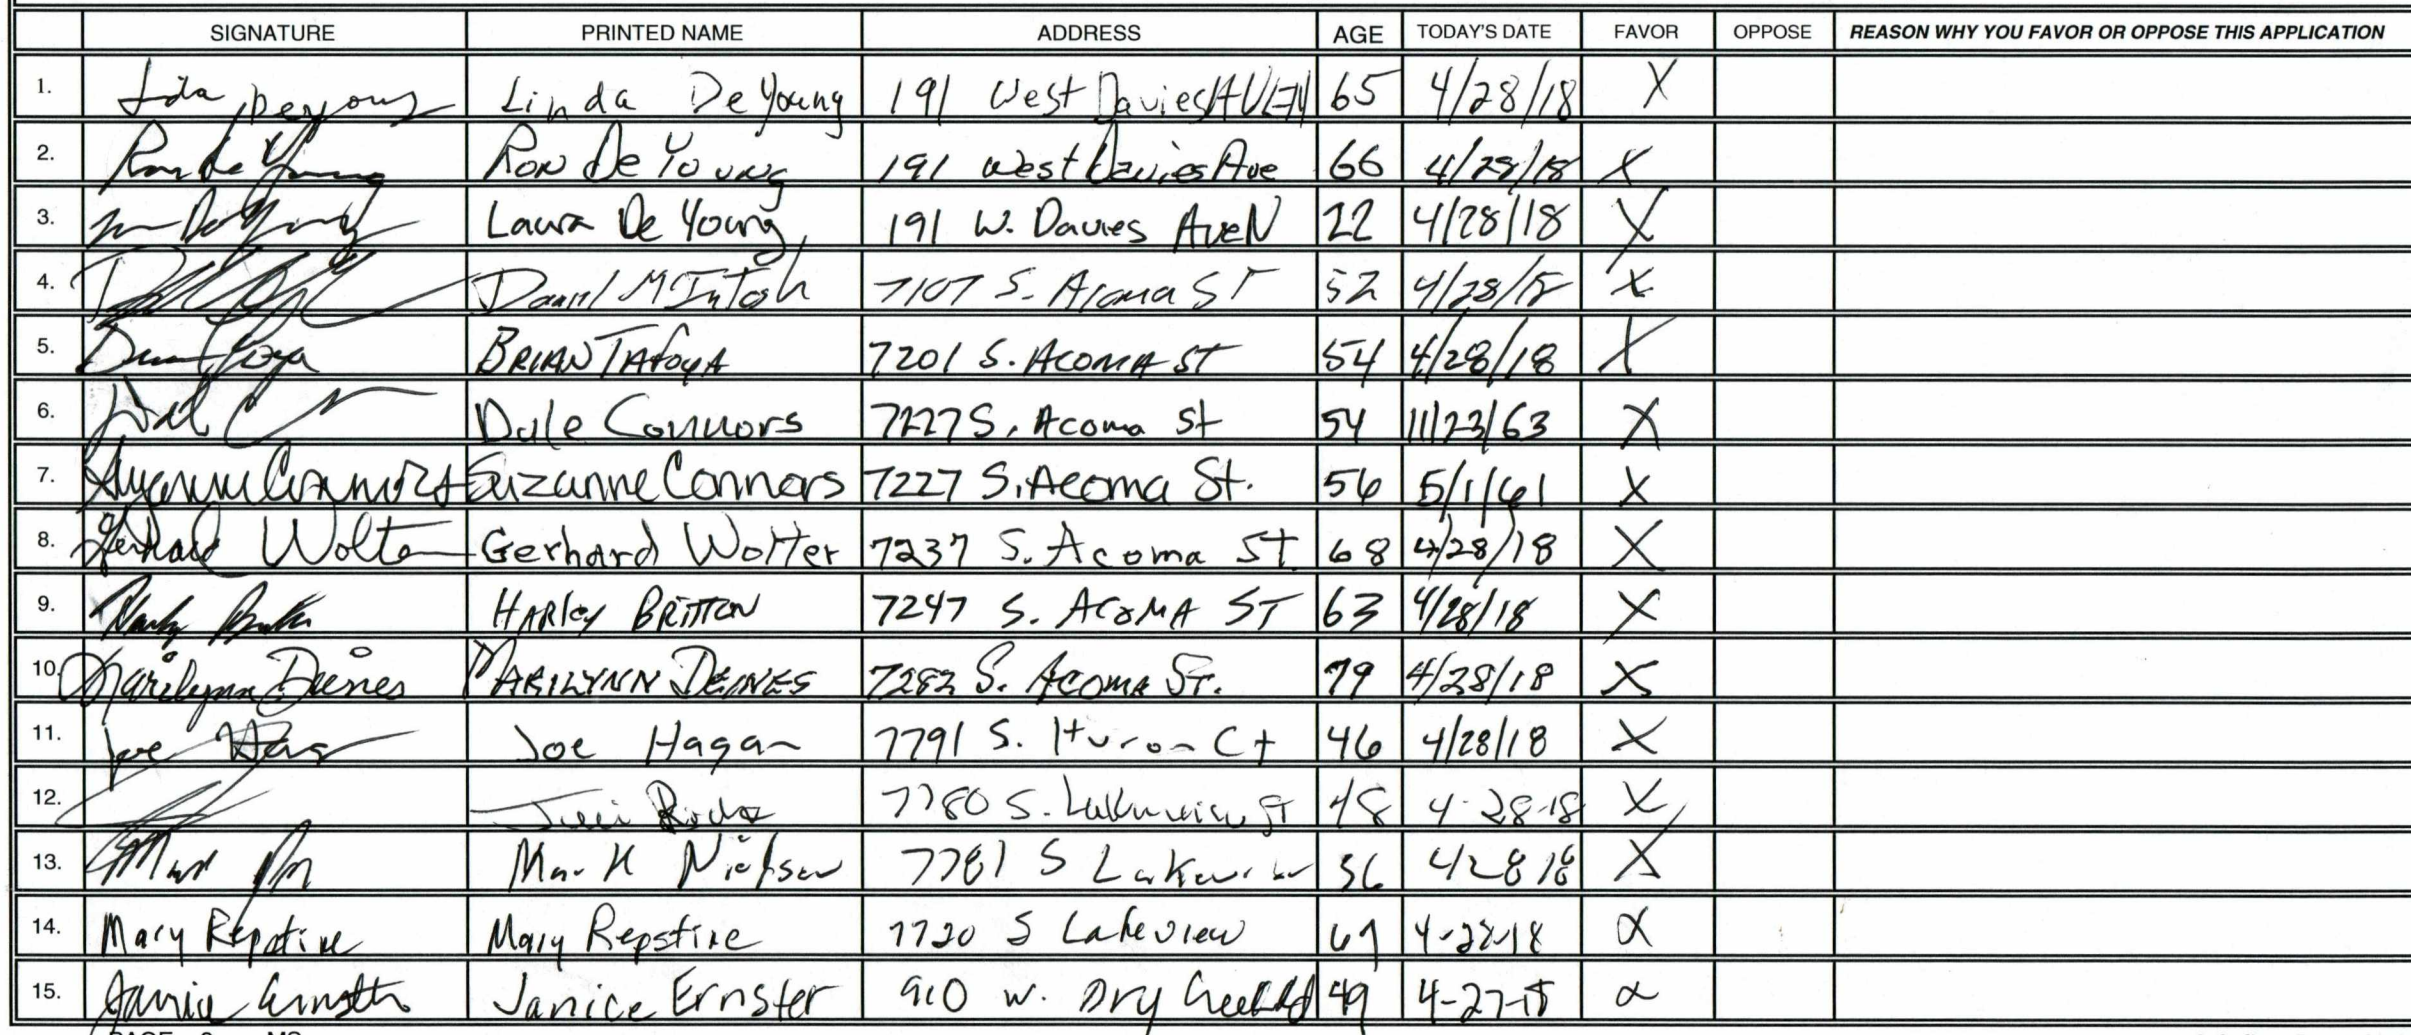 SIGNATURE PRINTED NAME ADDRESS AGE TODAY'S DATE FAVOR OPPOSE REASON WHY YOU FAVOR OR OPPOSE THIS APPLICATION
1. Linda De Young 191 West Davies 65 4/28/18 X
2. Ron De Young Ron De Young 191 West Davies Ave 66 4/28/18 X
3. Laura De Young 191 W. Davies Ave N 22 4/28/18 X
4. McIntosh 7107 S. Acoma ST 52 4/28/18 X
5. BRIAN TAFOYA 7201 S. ACOMA ST 54 4/28/18 X
6. Dale Connors 7227 S. Acoma St 54 11/23/63 X
7. Suzanne Connors Suzanne Connors 7227 S. Acoma St. 56 5/1/61 X
8. Gerhard Wolter Gerhard Wolter 7237 S. Acoma St. 68 4/28/18 X
9. HARLEY BRITTON 7247 S. ACOMA ST 63 4/28/18 X
10. Marilynn Deines MARILYNN DEINES 7282 S. ACOMA ST. 79 4/28/18 X
11. Joe Joe Hagan 7791 S. Huron Ct 46 4/28/18 X
12. 7780 S. 48 4-28-18 X
13. Mark Nielsen 7781 S Lakeview 4 28 18 X
14. Mary Repstine Mary Repstine 7720 S Lakeview 4-28-18 X
15. Janice Ernster Janice Ernster 910 W. Dry Creek Rd 49 4-27-18 X